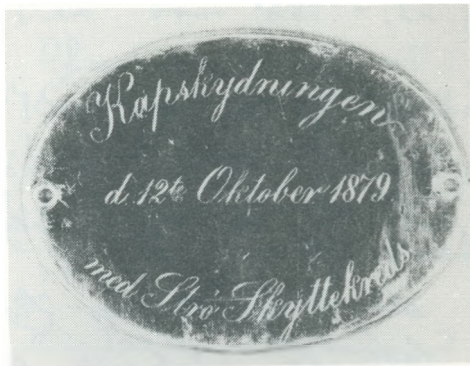 Kapskydningen
d. 12te Oktober 1879
med Strø Skyttekreds